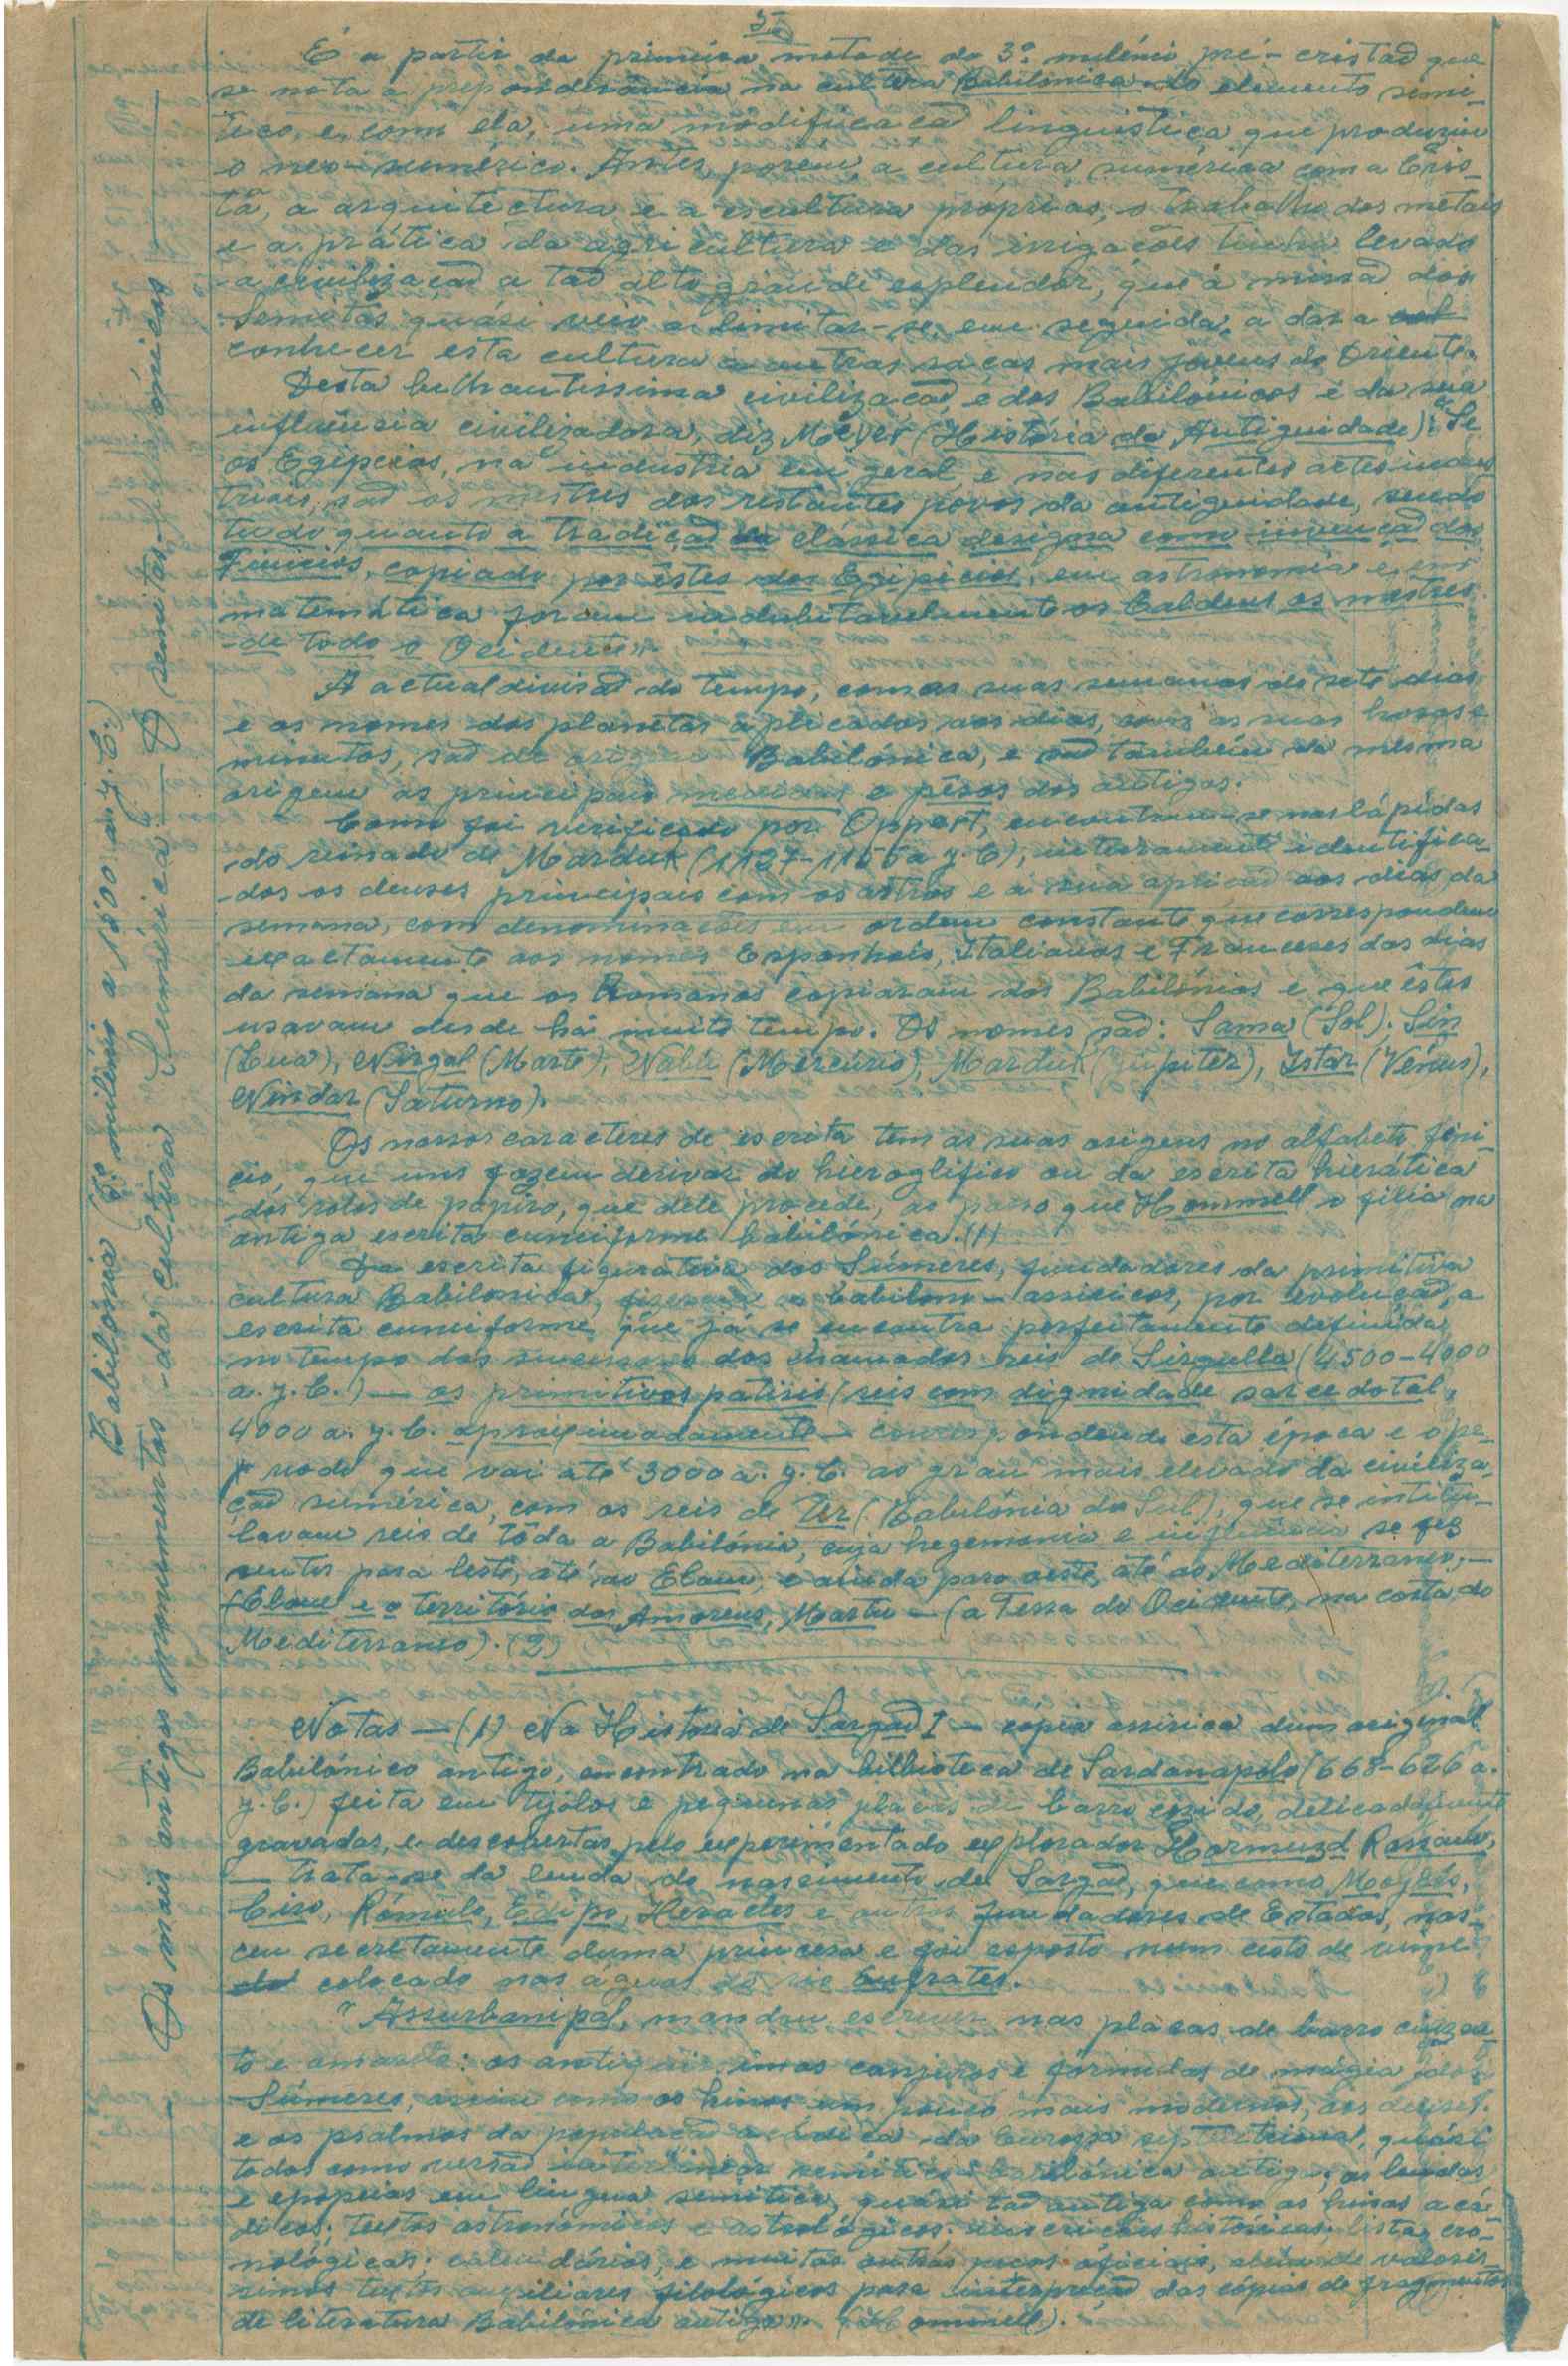 5
É a partir da primeira metade do 3.º milénio pré-cristão que
se nota a preponderância na cultura Babilónica do elemento semi-
tico, e, com ela, uma modificação linguistica que produziu
o neo-sumérico. Antes, porém, a cultura sumérica com a
a arquitectura e a escultura próprias, o trabalho dos metais
e a prática da agricultura e das irrigações tinha levado
a civilização a tão alto grau de esplendor, que a missão dos
Semitas quási veio a limitar-se, em seguida, a dar a
conhecer esta cultura a outras raças mais jovens do Oriente.
Desta brilhantissima civilização, é dos Babilónicos e da sua
influência civilizadora, diz Meyer (História da Antiguidade): "Se
os Egipcios, na industria em geral, e nas diferentes artes indus-
triais, são os mestres dos restantes povos da antiguidade, sendo
tudo quanto a tradição clássica designa como invenção dos
Fenicios, copiado por êstes dos Egipcios, em astronomia e em
matemática foram indubitavelmente os Caldeus os mestres
de todo o Ocidente".
A actual divisão do tempo, com as suas semanas de sete dias
e os nomes dos planetas aplicados aos dias, com as suas horas e
minutos, são de origem Babilónica, e são também da mesma
origem as principais medidas e pêsos dos antigos.
Como foi verificado por Oppert, encontram-se nas lápidas
do reinado de Marduk (1137-1156 a. J. C.), inteiramente identifica-
dos os deuses principais com os astros e a sua aplicação aos dias da
semana, com denominações em ordem constante que correspondem
exactamente aos nomes Espanhois, Italianos e Franceses dos dias
da semana que os Romanos copiaram dos Babilónios e que êstes
usavam desde há muito tempo. Os nomes são: Sama (Sol); Sin
(Lua), Nirgal (Marte), Nabú (Mercúrio), Marduk (Júpiter), Istar (Vénus),
Nindar (Saturno).
Os nossos caracteres de escrita tem as suas origens no alfabeto fení-
cio, que uns fazem derivar do hieroglifico ou da escrita hierática
dos rolos de papiro, que dele procede, ao passo que Hommell o filia na
antiga escrita cuneiforme babilónica. (1)
Da escrita figurativa dos Súmeres, fundadores da primitiva
cultura Babilonica, fizeram os babilono-assirios, por evolução, a
escrita cuneiforme, que já se encontra perfeitamente definida
no tempo dos sucessores dos chamados reis de Sirgulla (4500-4000
a. J. C.) — os primitivos patisis (reis com dignidade sacerdotal,
4000 a. J. C. aproximadamente — correspondendo esta época e o pe-
riodo que vai até 3000 a. J. C. ao grau mais elevado da civiliza-
ção sumérica, com os reis de Ur (Babilónia do Sul), que se intitu-
lavam reis de tôda a Babilónia, cuja hegemonia e influência se fez
sentir para leste, até ao Elam, e ainda para oeste, até ao Mediterraneo; —
(Elam e o território dos Amoreus, Martu — (a Terra do Ocidente, na costa do
Mediterraneo). (2)
Notas — (1) Na Historia de Sargão I — copia assirica dum original
Babilónico antigo, encontrado na bilbioteca de Sardanapolo (668-626 a.
J. C.) feita em tijolos e pequenas placas de barro cosido, delicadamente
gravadas, e descobertas pelo experimentado explorador Hormuzd Rassam,
— trata-se da lenda do nascimento de Sargão, que como Moysés,
Ciro, Rómulo, Édipo, Heracles e outros fundadores de Estados, nas-
ceu secretamente duma princesa e foi exposto num cesto de vime
colocado nas águas do rio Eufrates.
"Assurbanipal, mandou escrever nas placas de barro cinzen-
to e amarelo: os antiquissimos conjuros e fórmulas de mágia dos
Súmeres, assim como os hinos um pouco mais modernos, aos deuses
e os psalmos da população acádica da septentrional, quási
todos com versão interlinear semitica-babilónica antiga; as lendas
e epopeias em lingua semitica, quási tão antiga como os hinos acá-
dicos; textos astronómicos e astrológicos; inscrições históricas; listas cro-
nológicas; calendários, e muitas outras peças oficiais, além de valiosis-
simos textos auxiliares filológicos para interpretação das cópias de fragmentos
de literatura Babilónica antiga". (Hommell).
Babilónia (5.º milénio a 1800 a. J. C.)
Os mais antigos monumentos da cultura Sumérica — O semitas babilónicos